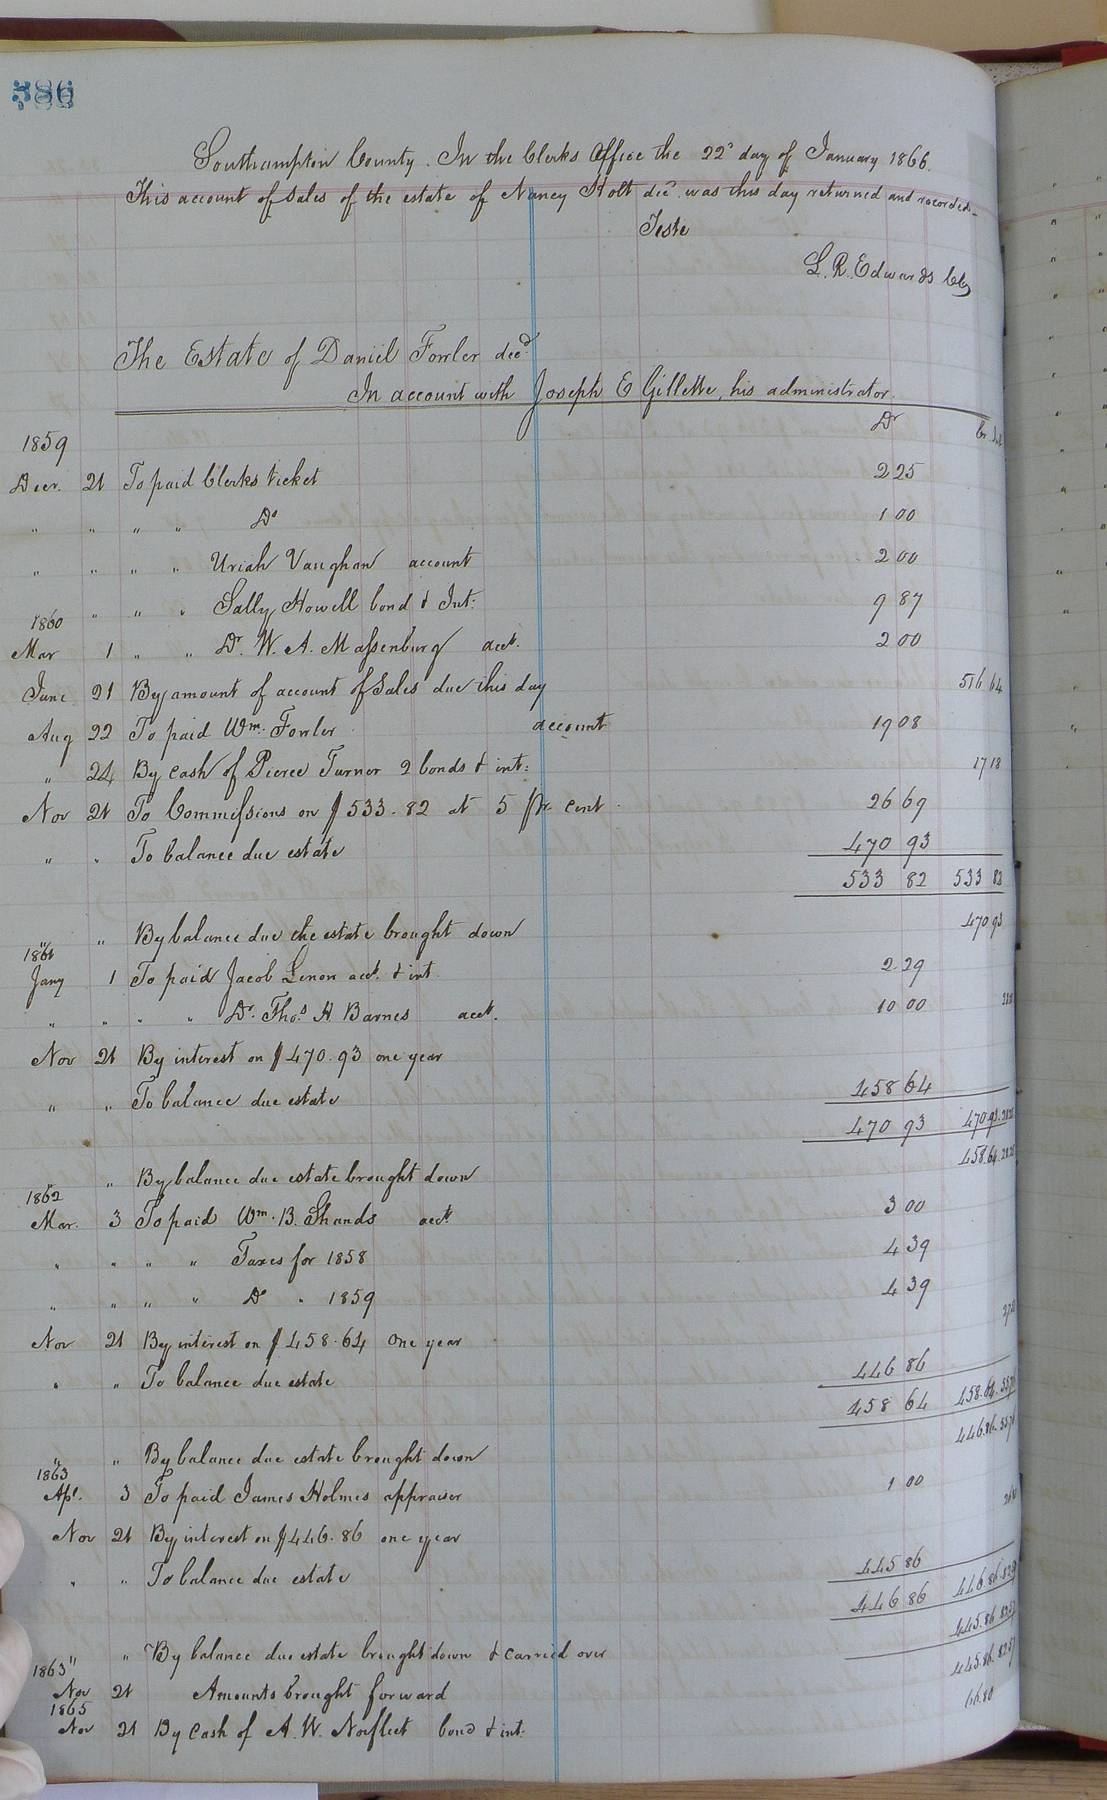 586
Southampton County. In the Clerks Office the 22d day of January 1866.
This account of Sales of the estate of Nancy Holt decd. was this day returned and recorded.
Teste
L. R. Edwards Clk
The Estate of Daniel Fowler decd
In account with Joseph E Gillette, his administrator.
1859 Dr Cr. Int
Decr. 21 To paid Clerks ticket 2 25
" " " " Do 1 00
" " " " Uriah Vaughan account 2 00
" " " Sally Howell bond & Int: 9 87
1860
Mar 1 " " Dr. W. A. Massenburg acct. 2 00
June 21 By amount of account of Sales due this day 516 64
Aug 22 To paid Wm. Fowler account 19 08
" 24 By cash of Pierce Turner 2 bonds & int: 17 18
Nov 21 To Commissions on $533.82 at 5 pr. cent 26 69
" " To balance due estate 470 93
533 82 533 82
" " By balance due the estate brought down 470 93
1861
Jany 1 To paid Jacob Lenon acct. & int. 2 29
" " " " Dr. Thos. H Barnes acct. 10 00
Nov 21 By interest on $470.93 one year
" " To balance due estate 458 64
470 93 470.93.
" " By balance due estate brought down 458.64.
1862
Mar. 3 To paid Wm. B. Shands acct 3 00
" " " " Taxes for 1858 4 39
" " " " Do " 1859 4 39
Nov 21 By interest on $458.64 one year
" " To balance due estate 446 86
458 64 458.64.
" " By balance due estate brought down 446.86.
1863
Apl. 3 To paid James Holmes appraiser 1 00
Nov 21 By interest on $446.86 one year
" " To balance due estate 445 86
446 86 446.86.
" " By balance due estate brought down & carried over 445.86.
1863
Nov 21 Amounts brought forward 445.86.
1865
Nov 21 By Cash of A. W. Norfleet bond & int. 66.80